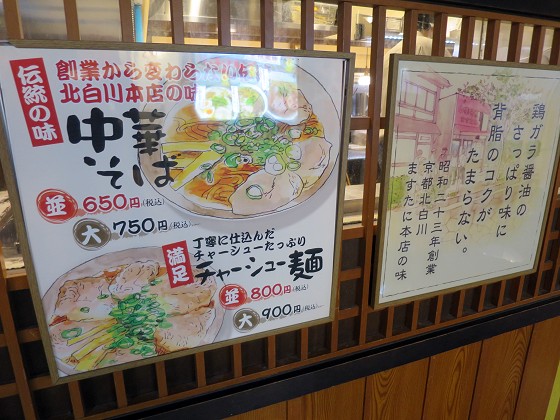 伝統の味
創業から変わらない
北白川本店の味
中華そば
並 650円(税込)
大 750円(税込)
満足
丁寧に仕込んだ
チャーシューたっぷり
チャーシュー麺
並 800円(税込)
大 900円(税込)
鶏ガラ醤油の
さっぱり味に
背脂のコクが
たまらない。
昭和二十三年創業
京都北白川
ますたに本店の味